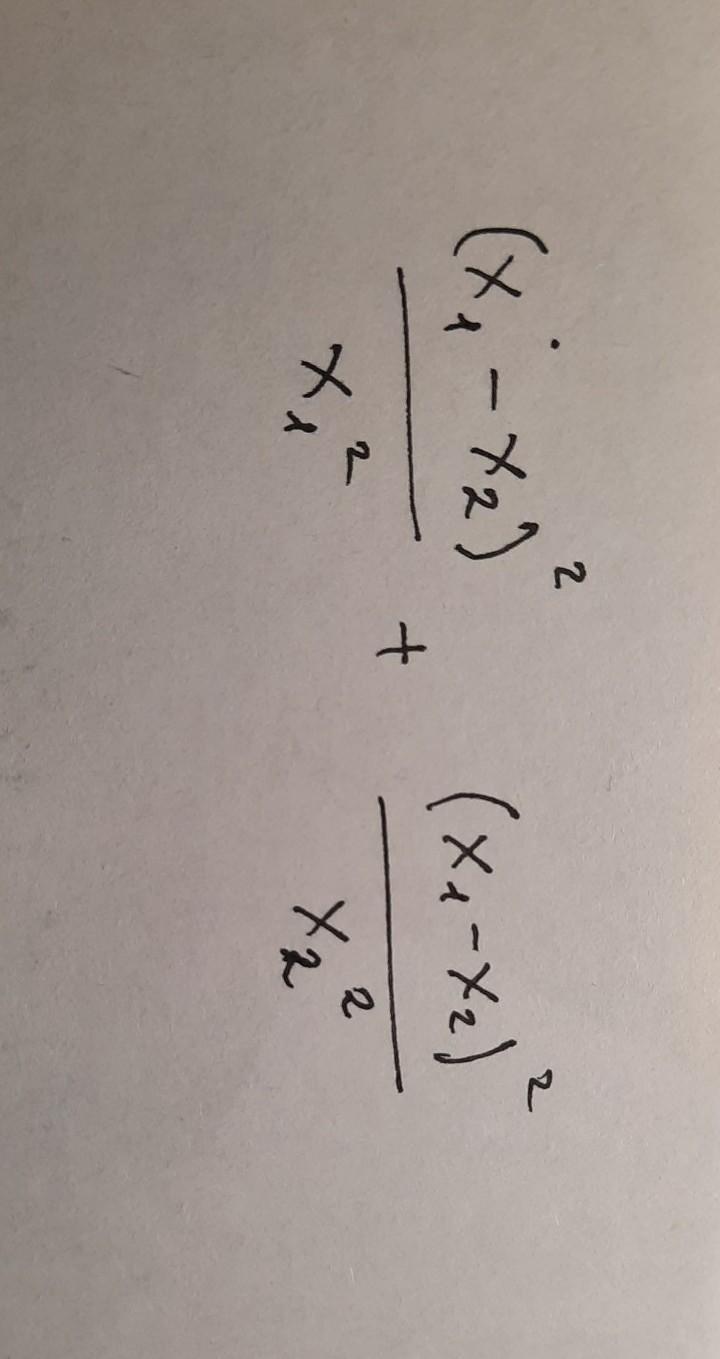 (x₁ - x₂)² / x₁² + (x₁ - x₂)² / x₂²